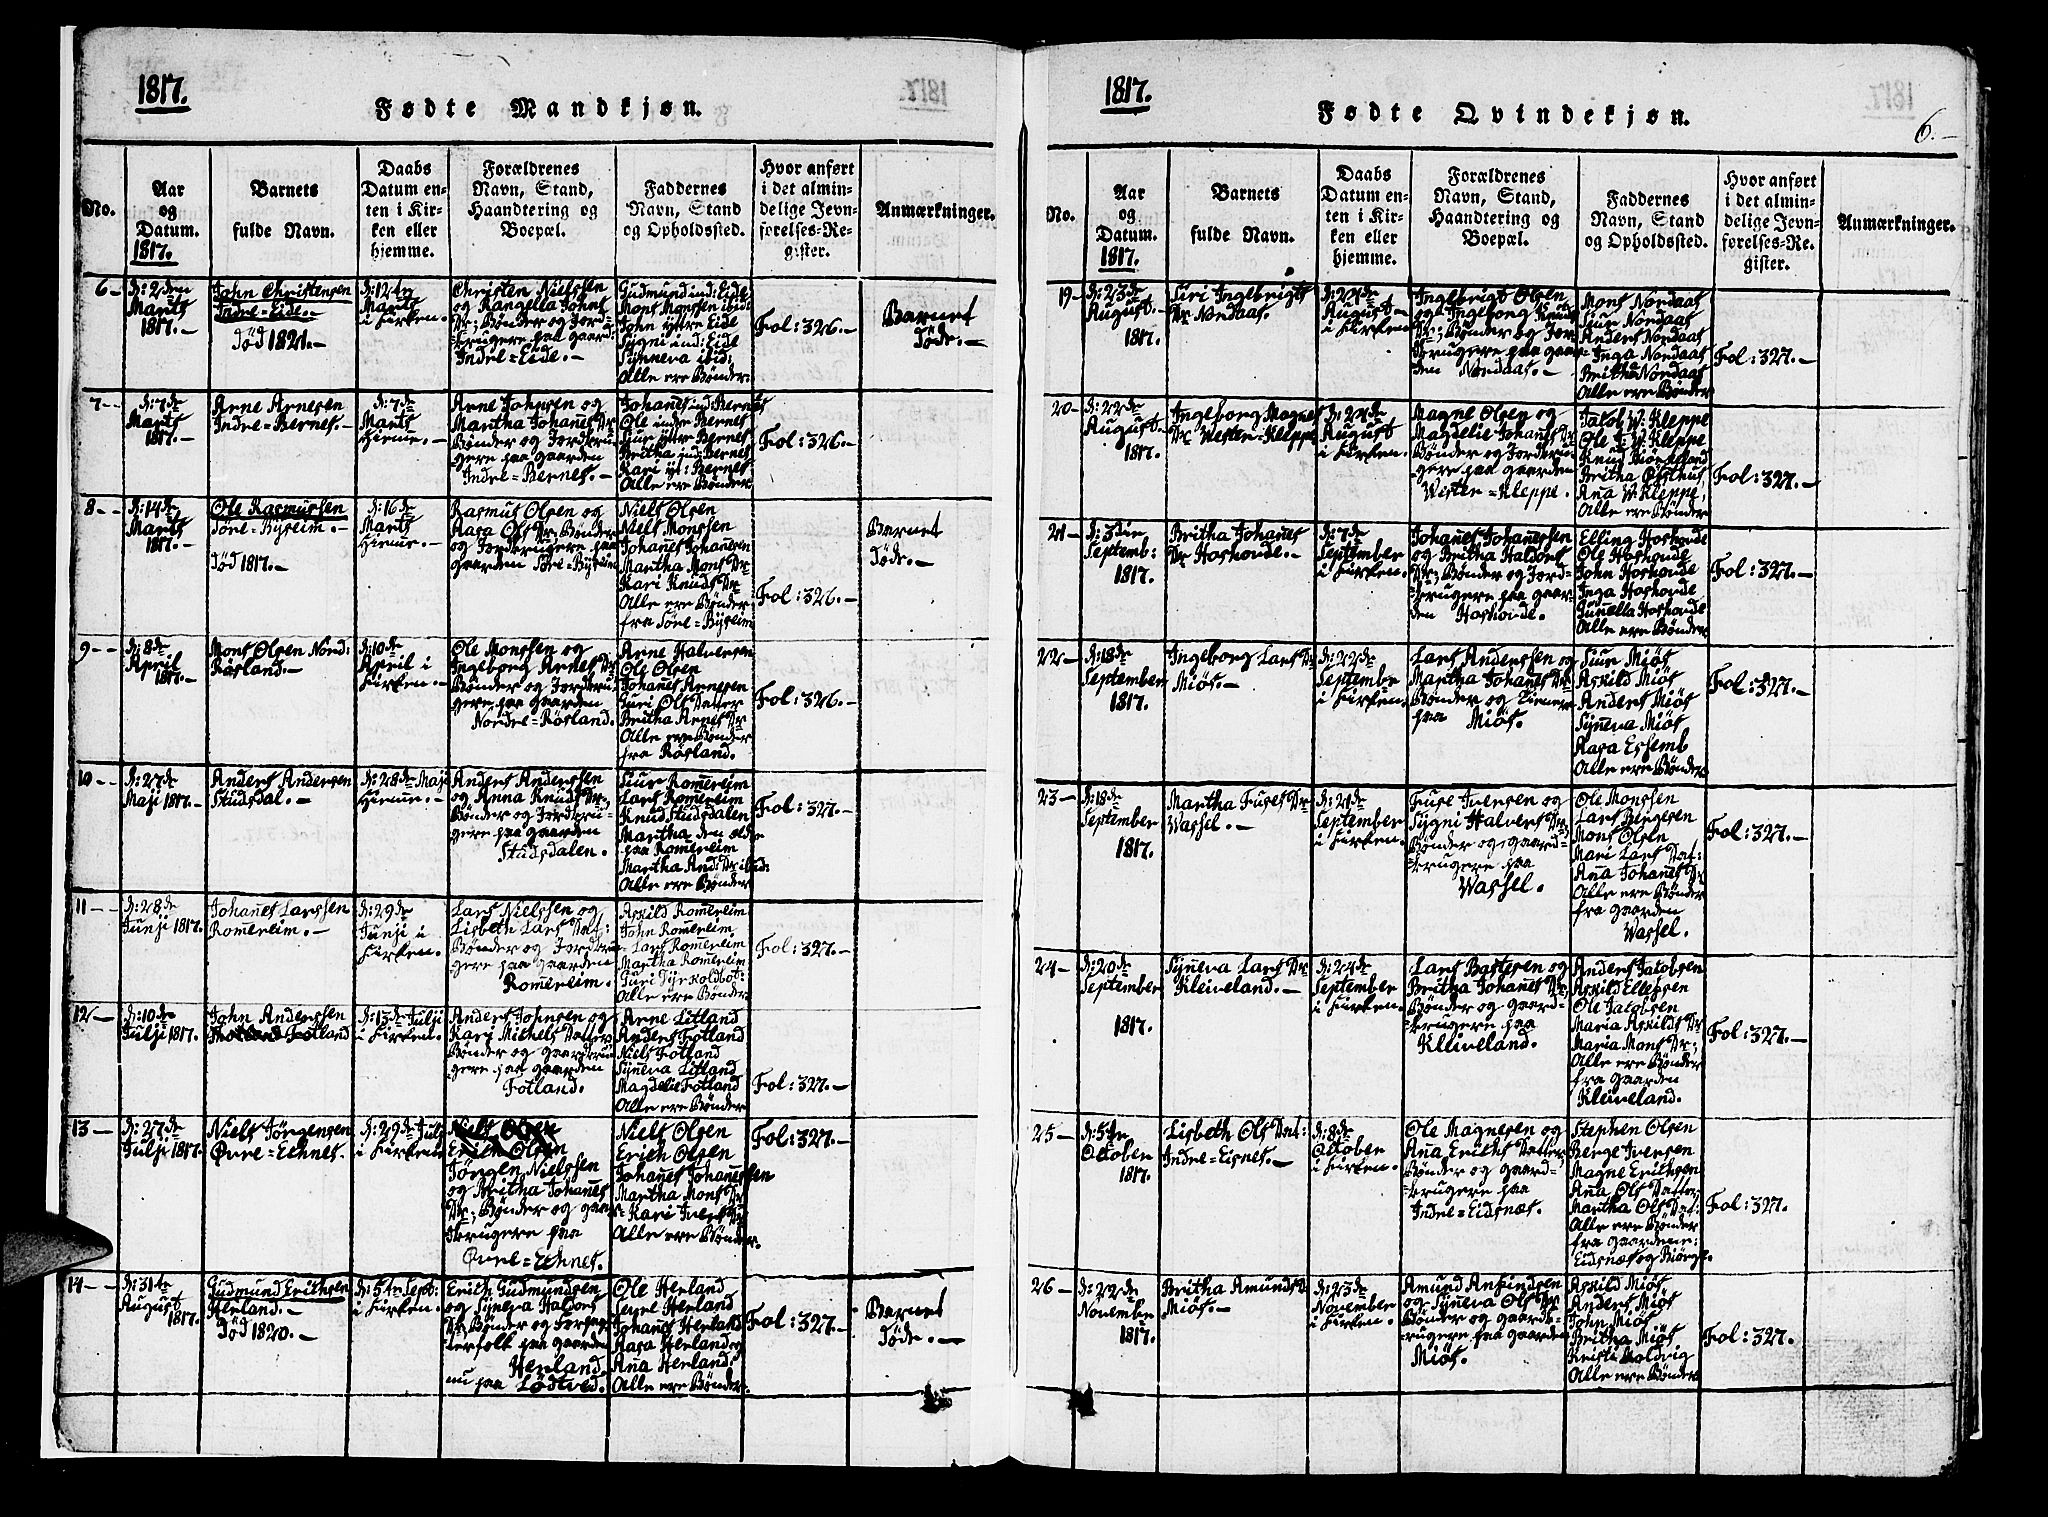 1817.
Fødte Mandkjøn.
No.
Aar
og
Datum.
1817.
Barnets
fulde Navn.
Daabs
Datum en-
ten i Kir-
ken eller
hjemme.
Forældrenes
Navn, Stand,
Haandtering og
Boepæl.
Faddernes
Navn, Stand
og Opholdssted.
Hvor anført
i det almin-
delige Jevn-
førelses-Re-
gister.
Anmærkninger.
6 -
d: 2den
Marts
1817. -
John Christensen
Indre = Eide. -
Død 1821. -
d: 12te
Marts
i Kirken.
Christen Nielssen
og Rangella Johns
Dr; Bønder og Jord-
=brugere paa gaard
Indre = Eide. -
Gudmund ind: Eide
Mons Monssen ibid:
John ytre Eide
Sygni ind: Eide
Synneva ibid:
Alle ere Bønder.
Fol: 326. -
Barnet
Døde. -
7 - -
d: 7de
Marts
1817. -
Arne Arnesen
Indre = Bernes. -
d: 7de
Marts
Hiemme. -
Arne Johnsen og
Martha Johanes Dr
Bønder og Jordbru-
gere paa gaarden
Indre = Bernes. -
Johanes ind: Bernes
Ole indre Bernes
Siur ytre Bernes
Britha ind: Bernes
Kari yt: Bernes
Alle ere Bønder
Fol: 326. -
8 - -
d: 14de
Marts
1817. -
Ole Rasmussen
Søre = Byreim. -
Død 1817. -
d: 16de
Marts
Hiemme. -
Rasmus Olsen og
Aasa Ols Dr; Bønder
og Jordbrugere paa
gaarden Søre = Byreim
Niels Olsen
Niels Monssen
Johanes Johanesen
Martha Mons Dr
Kari Knuds Dr
Alle ere Bønder
fra Søre = Byreim
Fol: 326. -
Barnet
Døde. -
9 - -
d: 8de
April
1817. -
Mons Olsen Nord:
Røsland. -
d: 10de
April i
Kirken. -
Ole Monssen og
Ingeborg Arnes Dr
Bønder og Jordbru-
gere paa gaarden
Nordre = Røsland.
Arne Halversen
Ole Olsen
Johanes Arnesen
Guri Ols Datter
Britha Arnes Dr
Alle ere Bønder
fra Røsland.
Fol: 326. -
10 -
d: 27de
Maji 1817. -
Anders Andersen
Studsdal. -
d: 28de Maji
Hiemme. -
Anders Anderssen
og Anna Knuds Dr;
Bønder og Jordbru-
gere paa gaarden
Studsdalen.
Siur Romereim
Lars Romereim
Knud Studsdalen
Martha den eldre
paa Romereim
Martha And: Dr ibid:
Alle ere Bønder
Fol: 327. -
11 - -
d: 28de
Junji 1817. -
Johanes Larssen
Romereim. -
d: 29de
Junji i
Kirken.
Lars Nielssen og
Lisbeth Lars Dat:
Bønder og Jordbru-
gere paa gaarden
Romereim.
Askild Romereim
John Romereim
Lars Romereim
Martha Romereim
Guri Tyrkoldbot:
Alle ere Bønder
Fol: 327. -
12 -
d: 10de
Julji 1817. -
John Anderssen
Fotland
d: 13de Julji
i Kirken.
Anders Johnsen og
Kari Michels Datter
Bønder og gaardbru-
gere paa gaarden
Fotland.
Arne Litland
Anders Fotland
Niels Fotland
Syneva Litland
Magdelie Fotland
Alle ere Bønder
Fol: 327. -
13 -
d: 27de
Julji 1817. -
Niels Jørgensen
Øvre = Eehnes. -
d: 29de Julji
i Kirken
Niels Olsen
Erich Olsen
Jørgen Nielssen
og Britha Johanes
Dr; Bønder og gaar-
dbrugere paa
Øvre = Eehnes.
Niels Olsen
Erich Olsen
Johanes Johanessen
Martha Mons Dr
Kari Ivers Dr
Alle ere Bønder.
Fol: 327. -
14 -
d: 31te
August
1817. -
Gudmund Erichsen
Herland. -
Død 1820. -
d: 5te Sept:
i Kirken.
Erich Gudmundsen
og Syneva Haldors
Dr; Bønder og
paa gaarden
Herland
nu paa Lødtved.
Ole Herland
Herland
Johanes Herland
Aasa Herland og
Ana Herland
Alle ere Bønder.
Fol: 327. -
Barnet
Døde. -
1817.
Fødte Qvindekjøn.
6. -
No.
Aar
og
Datum.
1817.
Barnets
fulde Navn.
Daabs
Datum en-
ten i Kir-
ken eller
hjemme.
Forældrenes
Navn, Stand,
Haandtering og
Boepæl.
Faddernes
Navn, Stand
og Opholdssted.
Hvor anført
i det almin-
delige Jevn-
førelses-Re-
gister.
Anmærkninger.
19 -
d: 23de
August -
1817.
Siri Ingebrigts
Dr Nordaas.
d: 24de
August -
i Kirken
Ingebrigt Olsen
og Ingeborg Knuds
Dr; Bønder og Jor-
dbrugere paa gaar-
den Nordaas. -
Mons Nordaas
Siur Nordaas
Anders Nordaas
Inga Nordaas
Britha Nordaas
Alle ere Bønder
Fol: 327. -
20 -
d: 22de
August -
1817.
Ingeborg Magnes
Dr Wester = Kleppe
d: 24de
August
i Kirken.
Magne Olsen og
Magdelie Johanes Dr
Bønder og Jordbru-
gere paa gaarden
Wester = Kleppe.
Jacob W. Kleppe
Ole W. Kleppe
Knud
Britha Øfsthus
Ana W. Kleppe,
Alle ere Bønder
Fol: 327. -
21 -
d: 3die
Septemb:
1817.
Britha Johanes
Dr Hoshovde. -
d: 7de
September
i Kirken.
Johanes Johanessen
og Britha Haldors
Dr; Bønder og Jord-
=brugere paa gaar-
den Hoshovde.
Elling Hoshovde
Ole Hoshovde
John Hoshovde
Inga Hoshovde
Gunella Hoshovde
Alle ere Bønder
Fol: 327. -
22 -
d: 18de
September
1817.
Ingeborg Lars Dr
Miøs. -
d: 22de
September
i Kirken.
Lars Anderssen og
Martha Johanes Dr
Bønder og Tienere
paa Miøs.
Siur Miøs
Askild Miøs
Anders Miøs
Syneva Miøs
Aasa
Alle ere Bønder
Fol: 327. -
23 -
d: 18de
September
1817.
Martha Fuses Dr
Wassel. -
d: 21de
September
i Kirken.
Fuse Iversen og
Sygni Halvers Dr;
Bønder og gaard-
=brugere paa
Wassel.
Ole Monssen
Lars Bergesen
Mons Olsen
Mari Lars Dat:
Ana Johanes Dr
Alle ere Bønder
fra gaarden
Wassel.
Fol: 327. -
24 -
d: 20de
September
1817.
Syneva Lars Dr
Kleiveland. -
d: 24de
September
i Kirken.
Lars Bastesen og
Britha Johanes Dr;
Bønder og gaard-
=brugere paa
Kleiveland.
Anders Jacobsen
Askild Ellefsen
Ole Jacobsen
Maria Askilds Dr
Maria Mons Dr;
Alle ere Bønder
fra gaarden
Kleiveland.
Fol: 327. -
25 -
d: 5te
October
1817.
Lisbeth Ols Dat:
Indre = Eisnes. -
d: 8de
October
i Kirken.
Ole Magnesen og
Ana Erichs Datter
Bønder og gaard-
=brugere paa
Indre = Eidsnæs.
Stephen Olsen
Berge Iversen
Magne Erichsen
Ana Ols Datter
Martha Ols Dat:
Alle ere Bønder
fra gaardene:
Eidsnæs og Biørge.
Fol: 327.
26 -
d: 22de
November
1817.
Britha Amunds D
Miøs. -
d: 23de
November
i Kirken.
Amund Anfindsen
og Syneva Ols Dr
Bønder og gaards-
=brugere paa gaarden
Miøs.
Askild Miøs
Anders Miøs
John Miøs
Britha Miøs
Kristi Moldvig
Alle ere Bønder
Fol: 327.